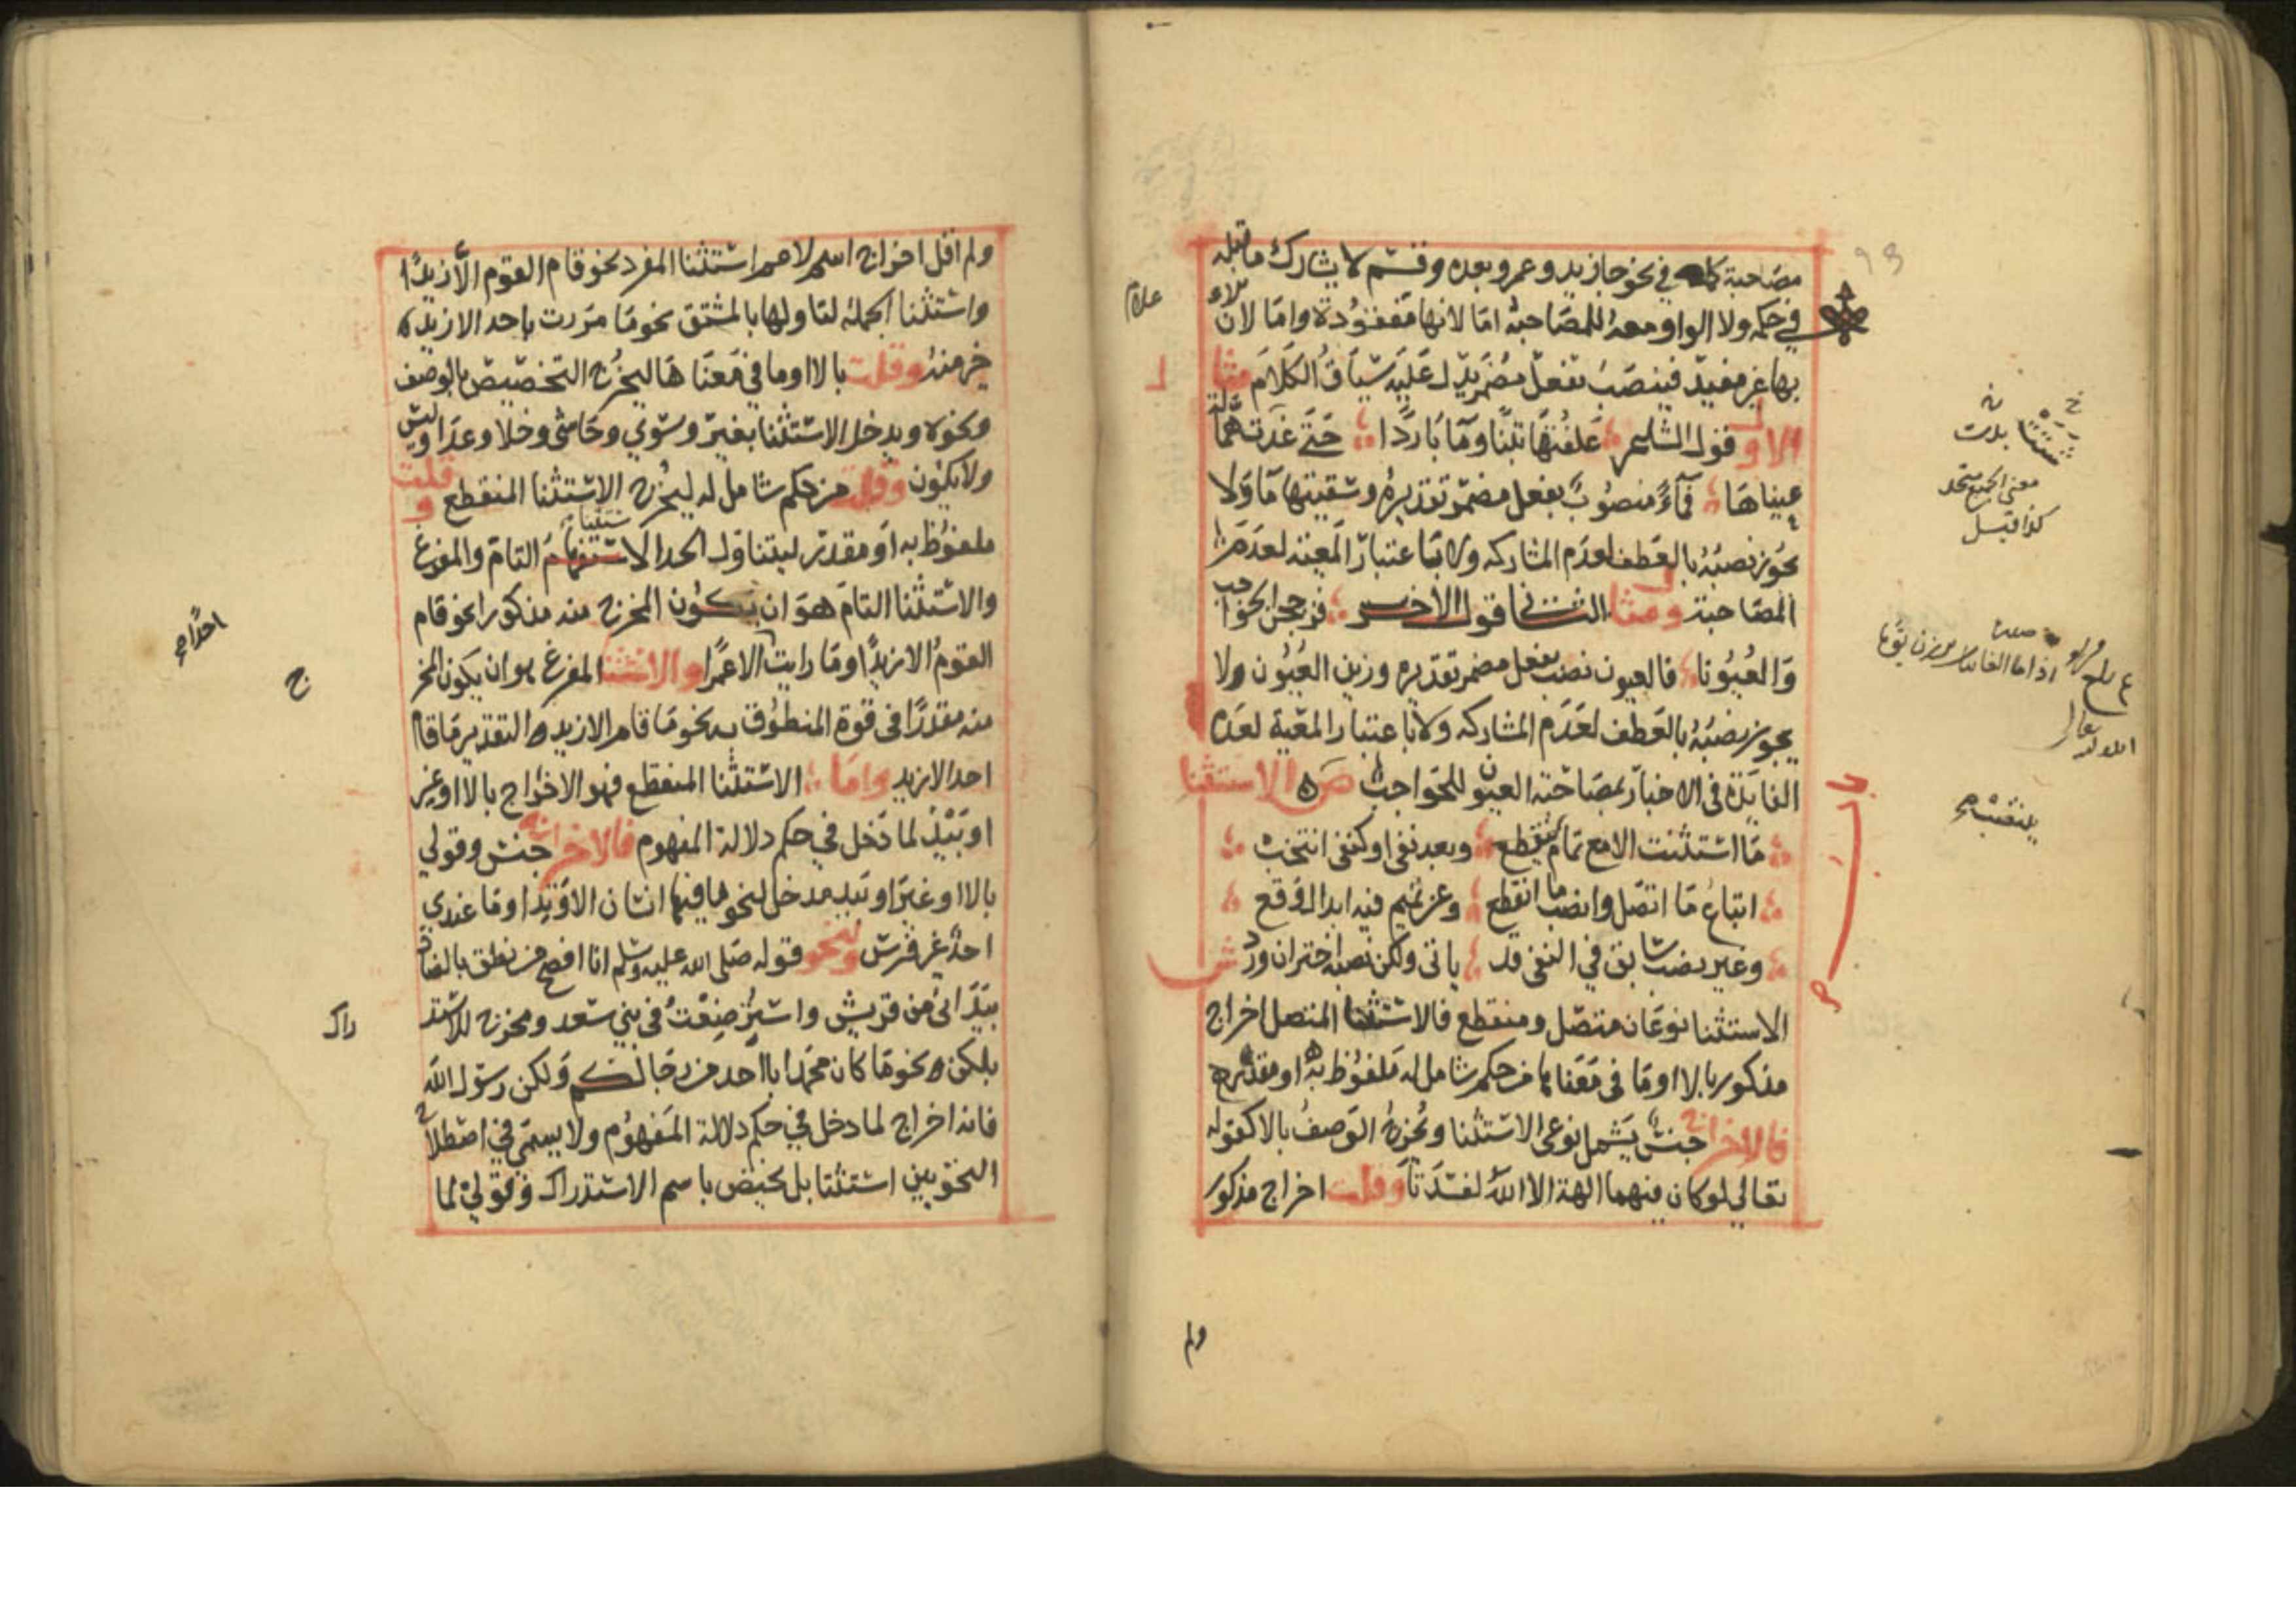 مصاحبة كما في نحو جا زيد وعمرو بعده وقسم لا يشارك ما قبله
في حكمه ولا الواو معه للمصاحبة اما لانها مفقودة واما لان الاعلام
بها غير مفيد فينصب بفعل مضمر يدل عليه سياق الكلام مثال
الاول قول الشاعر علفتها تبنا وما باردا حتى غدت همالة
عيناها فماء منصوب بفعل مضمر تقديره وسقيتها ما ولا
يجوز نصبه بالعطف لعدم المشاركه ولا باعتبار المعيته لعدم
المصاحبة ومثال الثاني قول الاخر فزججن الحواجب
والعيونا فالعيون نصب بفعل مضمر تقديره وزين العيون ولا
يجوز نصبه بالعطف لعدم المشاركه ولا باعتبار المعية لعدم
الفايدة في الاخبار بمصاحبة العيون للحواجب ص الاستثنا
ما استثنت الا مع تمام ينتصب وبعد نفي او كنفي انتخب
اتباع ما اتصل وانصب ما انقطع وعن تميم فيه ابدال وقع
وغير نصب سابق في النفي قد ياتي ولكن نصبه اختر ان ورد ش
الاستثنا نوعان متصل ومنقطع فالاستثنا المتصل اخراج
مذكور بالا او ما في معناها من حكم شامل له ملفوظ به او مقدر
فالاخراج جنس يشمل نوعي الاستثنا ويخرج الوصف بالا كقوله
تعالى لو كان فيهما الهة الا الله لفسدتا وقلت اخراج مذكور
ولم
معنى الجميع متحد
كذا قيل
ينتصب صح
ولم اقل اخراج اسم لاعم استثنا المفرد نحو قام القوم الا زيدا
واستثنا الجملة لتاولها بالمشتق نحو ما مررت باحد الا زيد
خير منه وقلت بالا او ما في معناها ليخرج التخصيص بالوصف
ونحوه ويدخل الاستثنا بغير وسوى وحاشى وخلا وعدا وليس
ولا يكون وقلت من حكم شامل له ليخرج الاستثنا المنقطع وقلت
ملفوظ به او مقدر ليتناول الحد الاستثنا التام والمفرغ
والاستثنا التام هو ان يكون المخرج منه مذكورا نحو قام
القوم الا زيدا وما رايت الا عمرا والاستثنا المفرغ هو ان يكون المخرج
منه مقدرا في قوة المنطوق به نحو ما قام الا زيد والتقدير ما قام
احد الا زيد واما الاستثنا المنقطع فهو الاخراج بالا او غير
او بيد لما دخل في حكم دلالة المفهوم فالاخراج جنس وقولي
بالا او غير او بيد مدخل لنحو ما فيها انسان الا وتدا وما عندي
احد غير فرس ولنحو قوله صلى الله عليه وسلم انا افصح من نطق بالضاد
بيد اني من قريش واسترضعت في بني سعد ومخرج للاستدراك
بلكن نحو ما كان محمد ابا احد من رجالكم ولكن رسول الله
فانه اخراج لما دخل في حكم دلالة المفهوم ولا يسمى في اصطلاح
النحويين استثنا بل يختص باسم الاستدراك وقولي لما